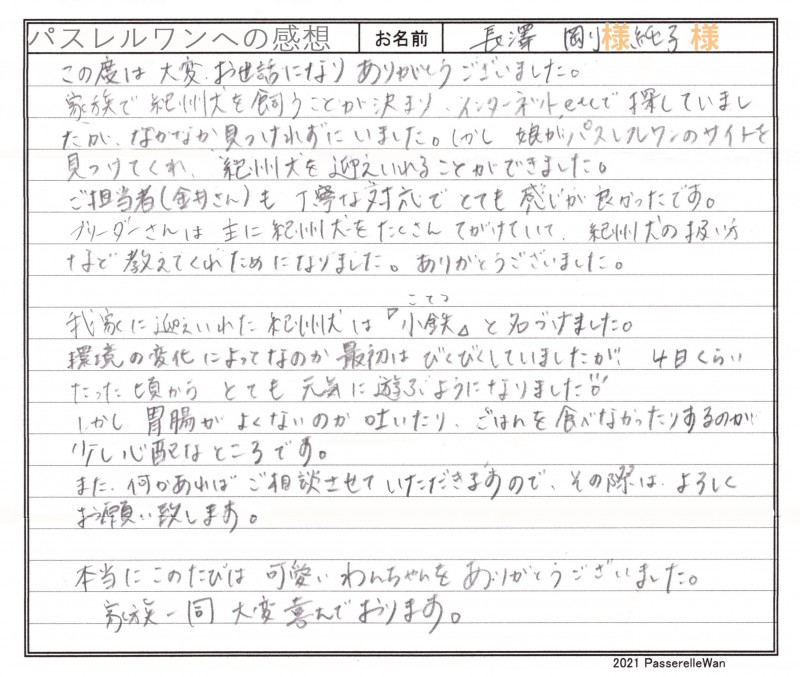 パスレルワンへの感想 お名前 長澤 剛様 純子様
この度は大変、お世話になりありがとうございました。
家族で紀州犬を飼うことが決まり、インターネットetcで探していまし
たが、なかなか見つけれずにいました。しかし娘がパスレルワンのサイトを
見つけてくれ、紀州犬を迎えいれることができました。
ご担当者(金井さん)も丁寧な対応でとても感じが良かったです。
ブリーダーさんは主に紀州犬をたくさんてがけていて、紀州犬の扱い方
など教えてくれためになりました。ありがとうございました。
我家に迎えいれた紀州犬は『小鉄』と名づけました。
こてつ
環境の変化によってなのか最初はびくびくしていましたが、4日くらい
たった頃からとても元気に遊ぶようになりました!!
しかし胃腸がよくないのか吐いたり、ごはんを食べなかったりするのが
少し心配なところです。
また、何かあればご相談させていただきますので、その際は、よろしく
お願い致します。
本当にこのたびは可愛いわんちゃんをありがとうございました。
家族一同大変喜んでおります。
2021 PasserelleWan